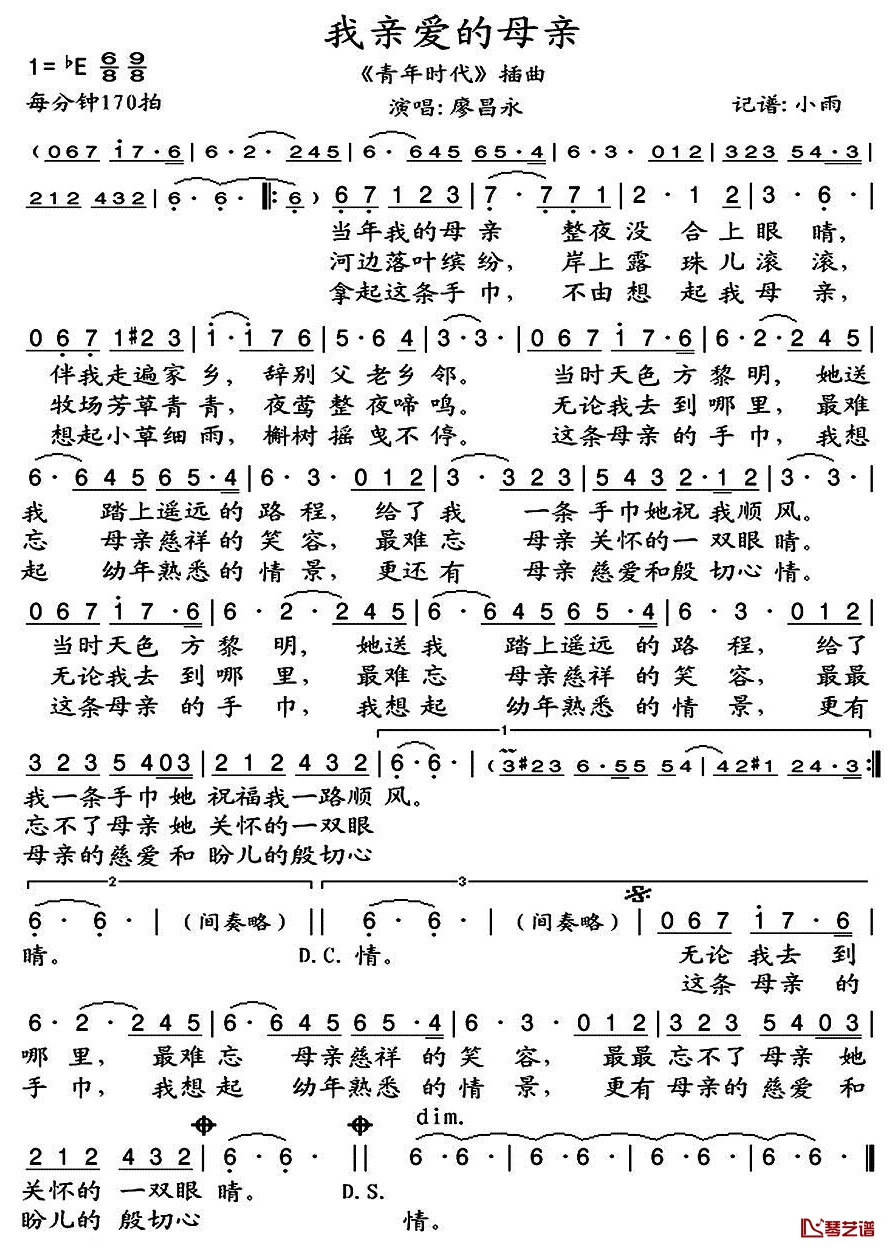 我亲爱的母亲
1=♭E 6/8 9/8
《青年时代》插曲
每分钟170拍
演唱:廖昌永
记谱:小雨
(067 i7·6|6·2·245|6·645 65·4|6·3·012|323 54·3|
212 432|6·6·‖:6) 67 123|7·771|2·12|3·6·|
当年我的母亲 整夜没合上眼睛,
河边落叶缤纷, 岸上露珠儿滚滚,
拿起这条手巾, 不由想起我母亲,
067 1#23|i·i76|5·64|3·3·|067 i7·6|6·2·245|
伴我走遍家乡, 辞别父老乡邻。 当时天色方黎明, 她送
牧场芳草青青, 夜莺整夜啼鸣。 无论我去到哪里, 最难
想起小草细雨, 槲树摇曳不停。 这条母亲的手巾, 我想
6·645 65·4|6·3·012|3·323|543 2·12|3·3·|
我 踏上遥远的路程, 给了我 一条手巾她祝我顺风。
忘 母亲慈祥的笑容, 最难忘 母亲关怀的一双眼睛。
起 幼年熟悉的情景, 更还有 母亲慈爱和殷切心情。
067 i7·6|6·2·245|6·645 65·4|6·3·012|
当时天色方黎明, 她送我 踏上遥远的路程, 给了
无论我去到哪里, 最难忘 母亲慈祥的笑容, 最最
这条母亲的手巾, 我想起 幼年熟悉的情景, 更有
1
323 5403|212 432|6·6·(3#23 6·55 54|42#1 24·3:‖
我一条手巾她祝福我一路顺风。
忘不了母亲她关怀的一双眼
母亲的慈爱和盼儿的殷切心
2 3
6·6·|(间奏略)‖6·6·(间奏略)|067 i7·6|
睛。 D.C. 情。 无论我去到
这条母亲的
6·2·245|6·645 65·4|6·3·012|323 5403|
哪里, 最难忘 母亲慈祥的笑容, 最最忘不了母亲她
手巾, 我想起 幼年熟悉的情景, 更有母亲的慈爱和
dim.
212 432|6·6·‖6·6·|6·6·|6·6·|6·‖
关怀的一双眼睛。 D.S.
盼儿的殷切心 情。
琴艺谱